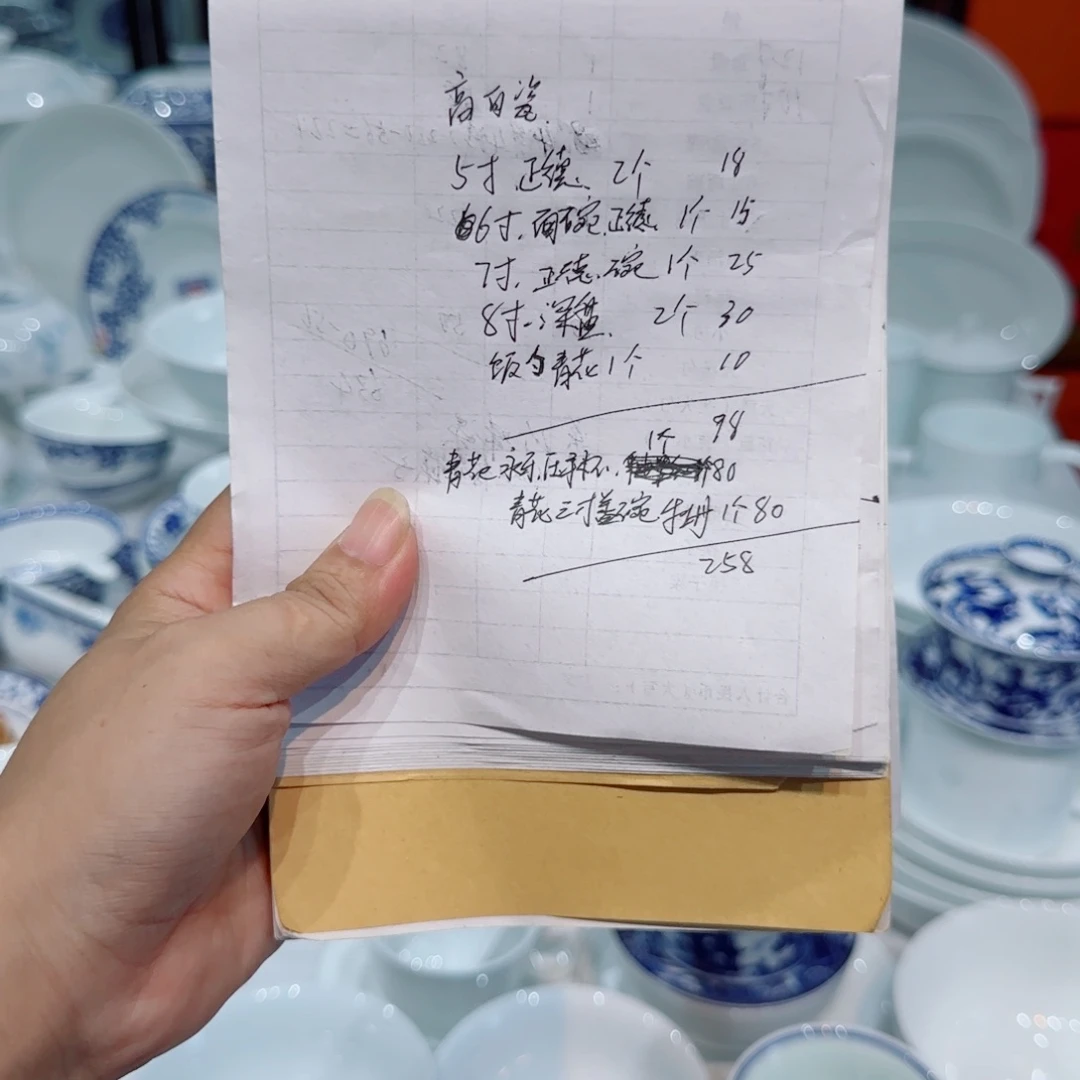 高白瓷.
5寸.正德、2个 18
6寸.面碗.正德、1个 15
7寸.正德.碗 1个 25
8寸、深盘、2个 30
饭勺青花1个 10
98
青花永乐压手杯、1个 80
青花三寸盖碗牡丹1个80
258